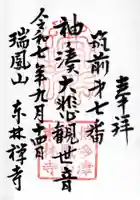 奉拝
筑前才七番
袖湊大悲観世音
令和七年九月十四日
瑞鳳山
東林禅寺